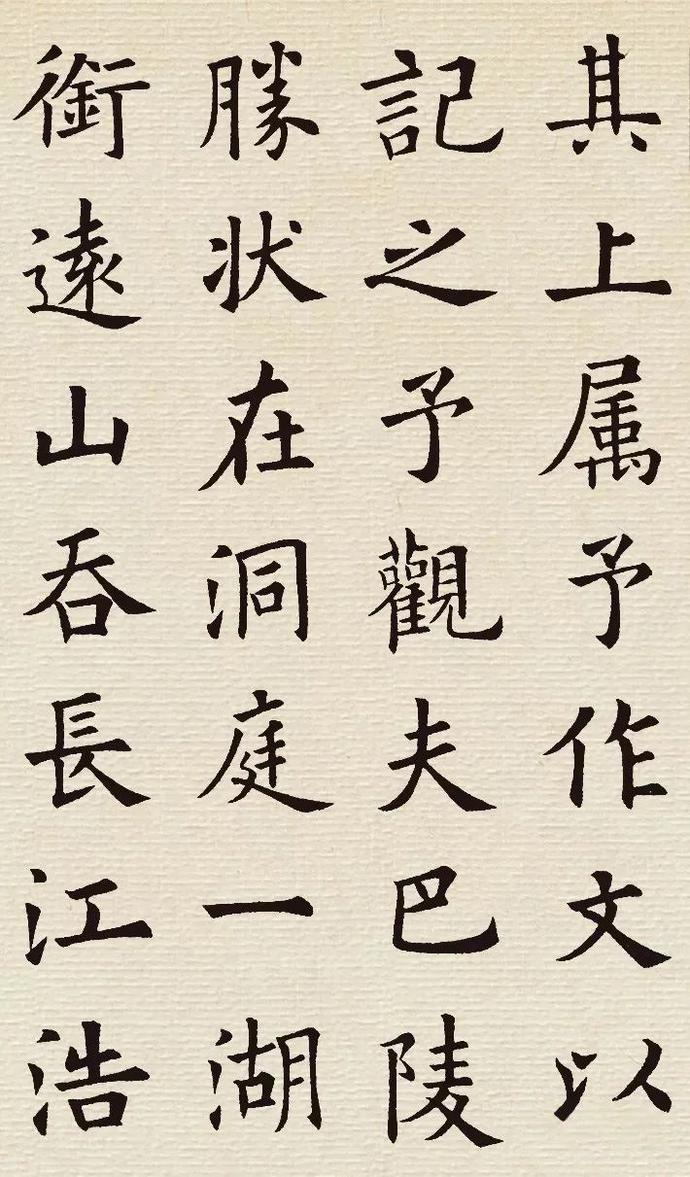 其上属予作文以
記之予觀夫巴陵
勝状在洞庭一湖
銜遠山吞長江浩